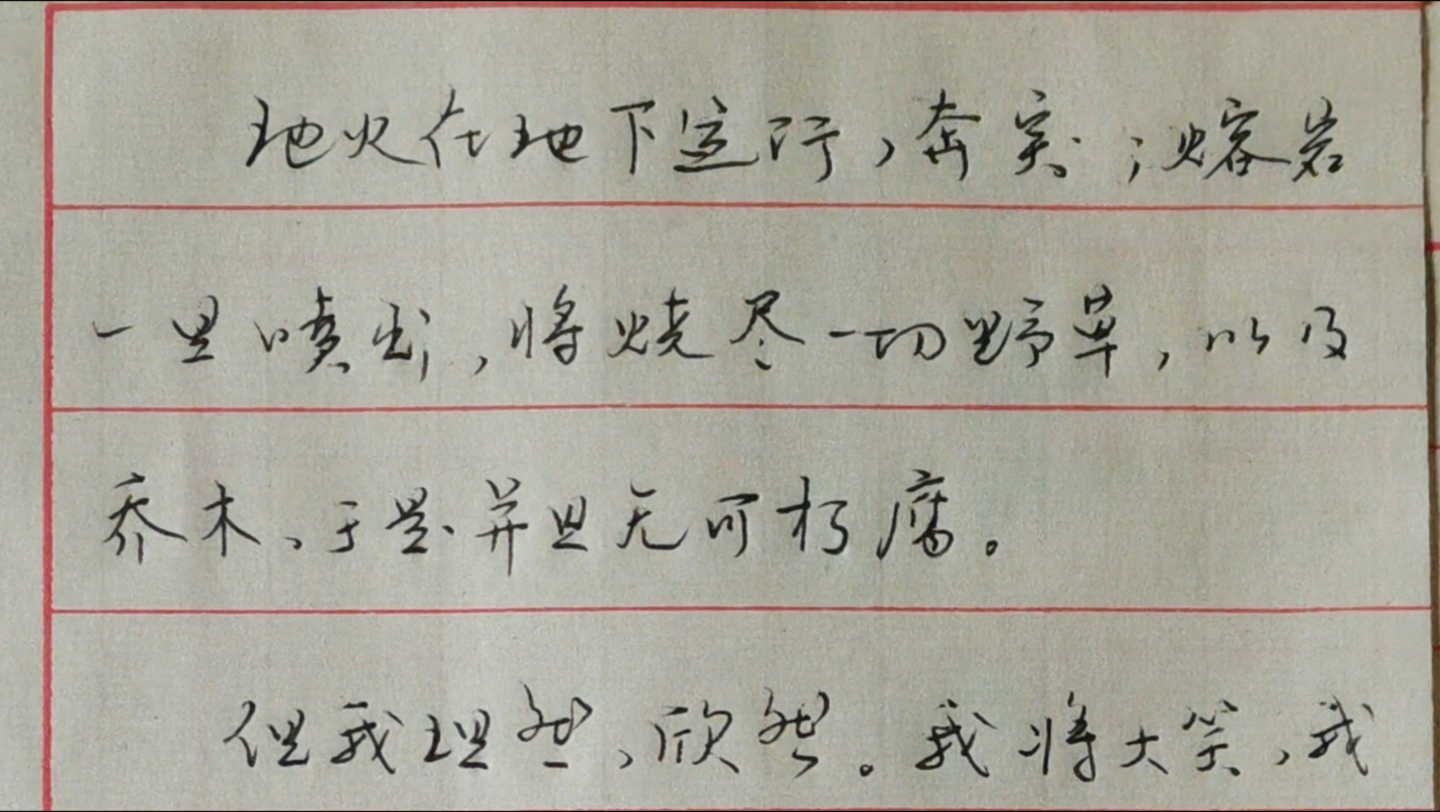 地火在地下运行,奔突;熔岩
一旦喷出,将烧尽一切野草,以及
乔木、于是并且无可朽腐。
但我坦然,欣然。我将大笑,我